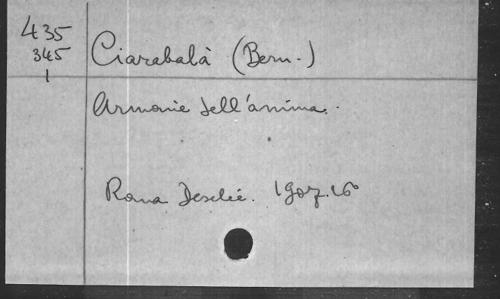 435
345
1
Ciarabalà (Bern.)
Armonie dell'anima.
Roma Desclée. 1907. 16°